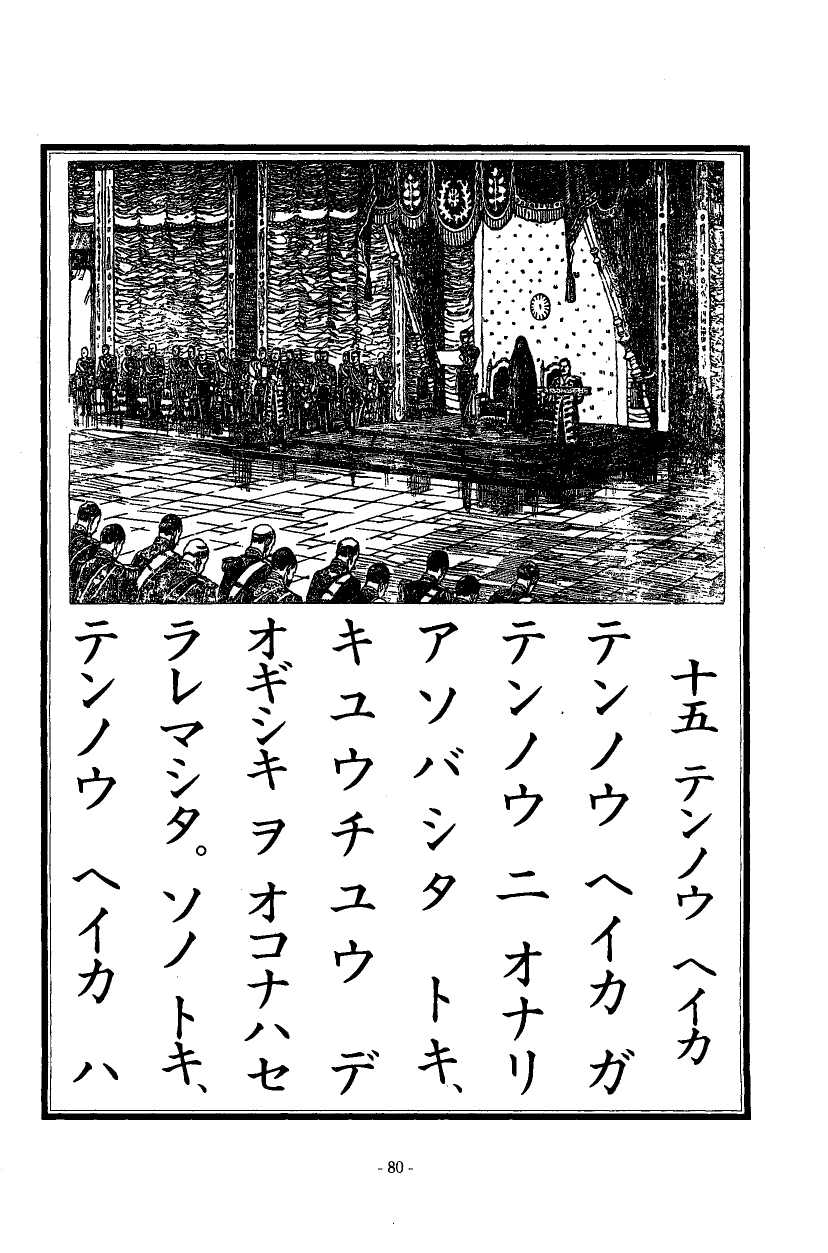 十五 テンノウ ヘイカ
テンノウ ヘイカ ガ
テンノウ ニ オナリ
アソバシタ トキ、
キユウチユウ デ
オギシキ ヲ オコナハセ
ラレマシタ。ソノ トキ、
テンノウ ヘイカ ハ
- 80 -